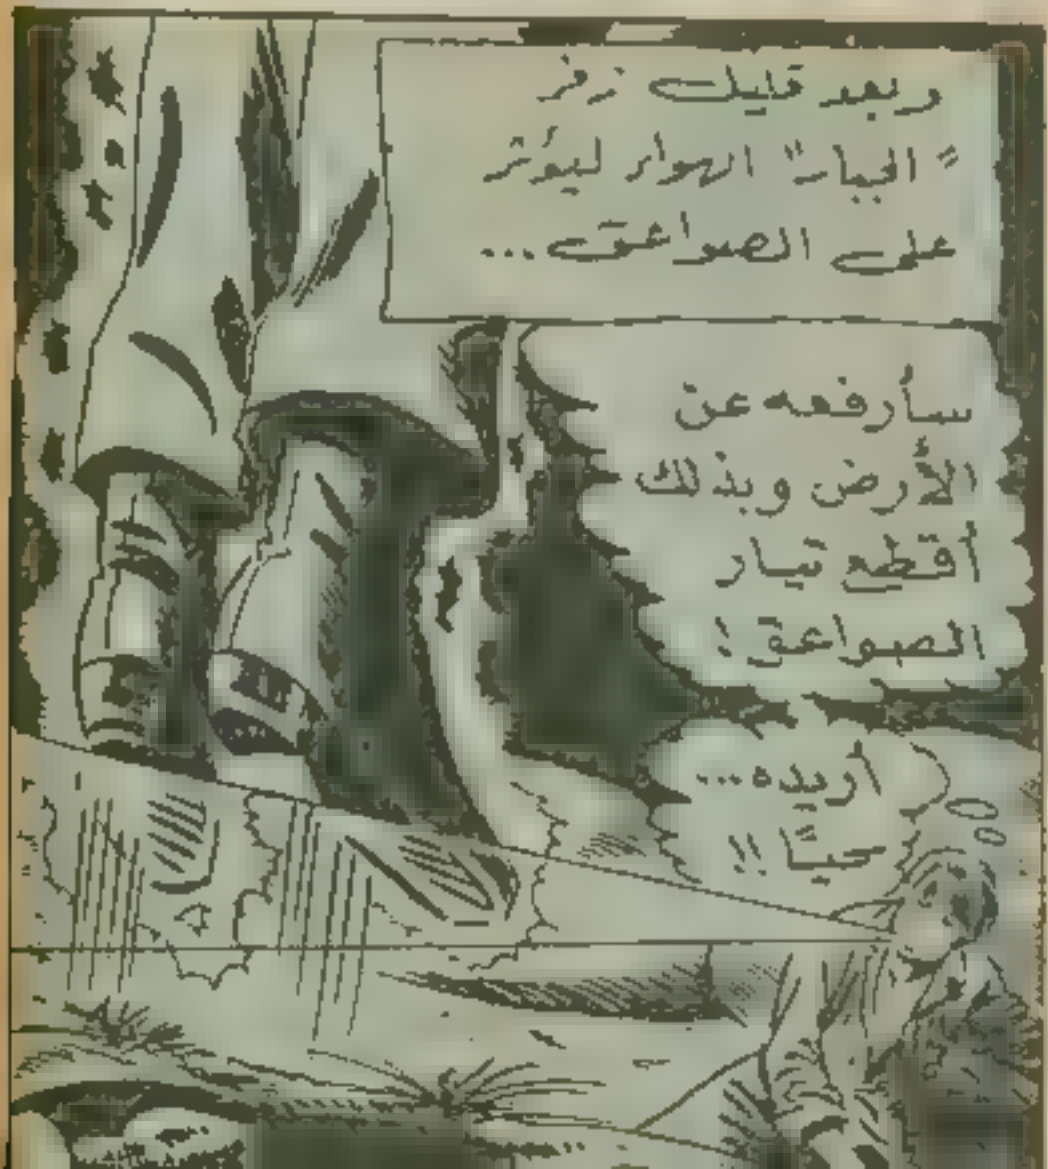 وبعد قليل زفر
"الجبار" الهواء ليؤثر
على الصواعق...
سأرفعه عن
الأرض وبذلك
أقطع تيار
الصواعق!
أريده...
حيًّا!!